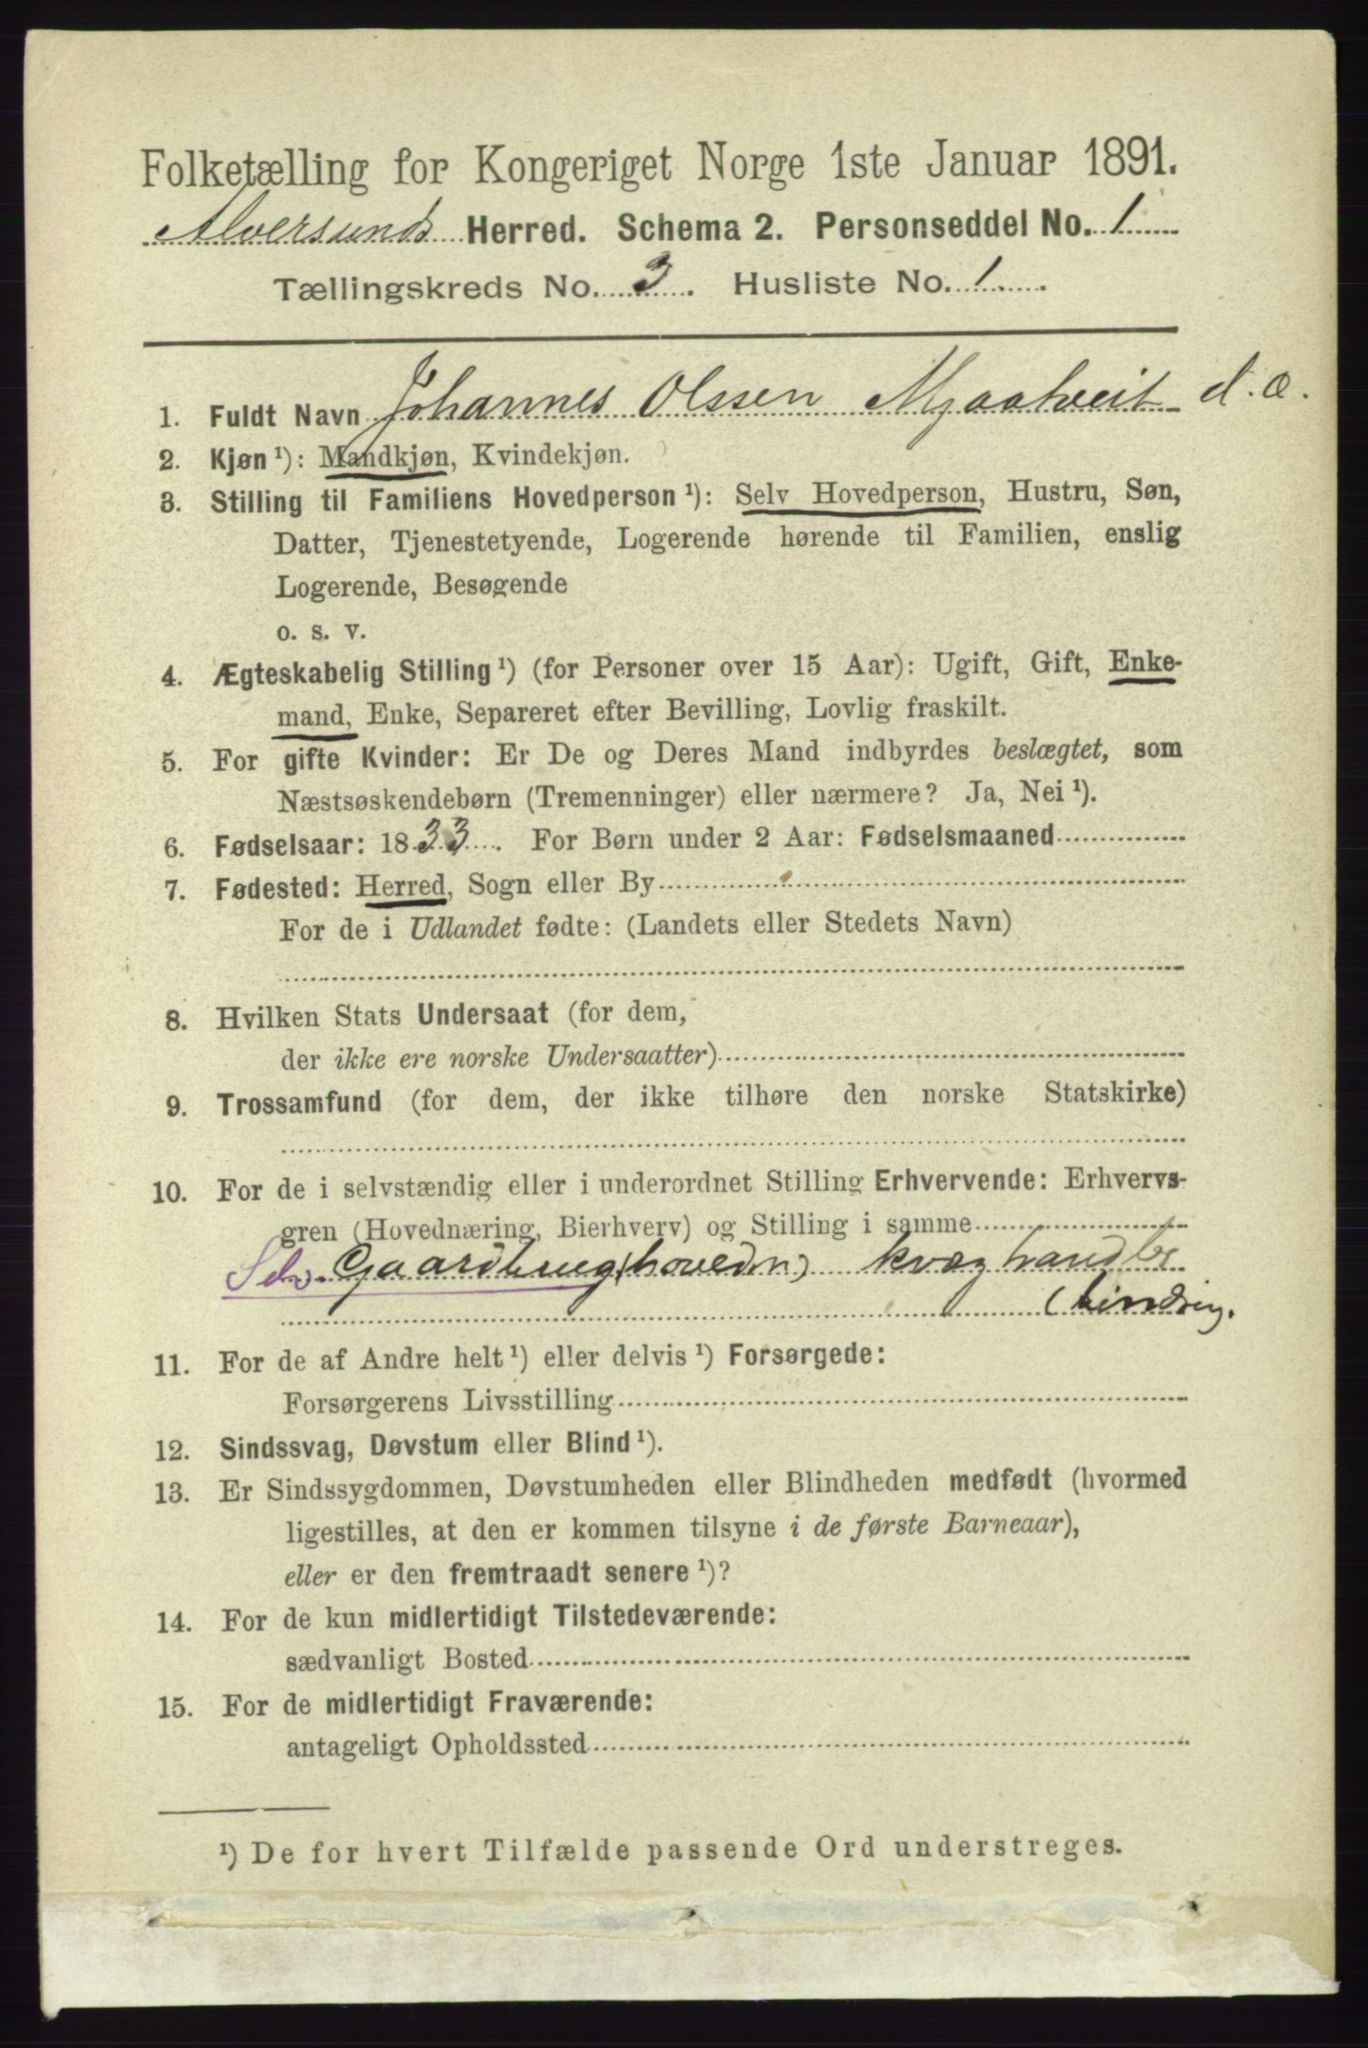 Folketælling for Kongeriget Norge 1ste Januar 1891.
Alversunds Herred. Schema 2. Personseddel No. 1
Tællingskreds No. 3. Husliste No. 1
1. Fuldt Navn Johannes Olssen Mjaatveit d. æ.
2. Kjøn ¹): Mandkjøn, Kvindekjøn.
3. Stilling til Familiens Hovedperson ¹): Selv Hovedperson, Hustru, Søn,
Datter, Tjenestetyende, Logerende hørende til Familien, enslig
Logerende, Besøgende
o. s. v.
4. Ægteskabelig Stilling ¹) (for Personer over 15 Aar): Ugift, Gift, Enke-
mand, Enke, Separeret efter Bevilling, Lovlig fraskilt.
5. For gifte Kvinder: Er De og Deres Mand indbyrdes beslægtet, som
Næstsøskendebørn (Tremenninger) eller nærmere? Ja, Nei ¹).
6. Fødselsaar: 1833. For Børn under 2 Aar: Fødselsmaaned
7. Fødested: Herred, Sogn eller By
For de i Udlandet fødte: (Landets eller Stedets Navn)
8. Hvilken Stats Undersaat (for dem,
der ikke ere norske Undersaatter)
9. Trossamfund (for dem, der ikke tilhøre den norske Statskirke)
10. For de i selvstændig eller i underordnet Stilling Erhvervende: Erhvervs-
gren (Hovednæring, Bierhverv) og Stilling i samme
Selv. Gaardbrug (hovedn) kvæghandler
(binæring.
11. For de af Andre helt ¹) eller delvis ¹) Forsørgede:
Forsørgerens Livsstilling
12. Sindssvag, Døvstum eller Blind ¹).
13. Er Sindssygdommen, Døvstumheden eller Blindheden medfødt (hvormed
ligestilles, at den er kommen tilsyne i de første Barneaar),
eller er den fremtraadt senere ¹)?
14. For de kun midlertidigt Tilstedeværende:
sædvanligt Bosted
15. For de midlertidigt Fraværende:
antageligt Opholdssted
¹) De for hvert Tilfælde passende Ord understreges.